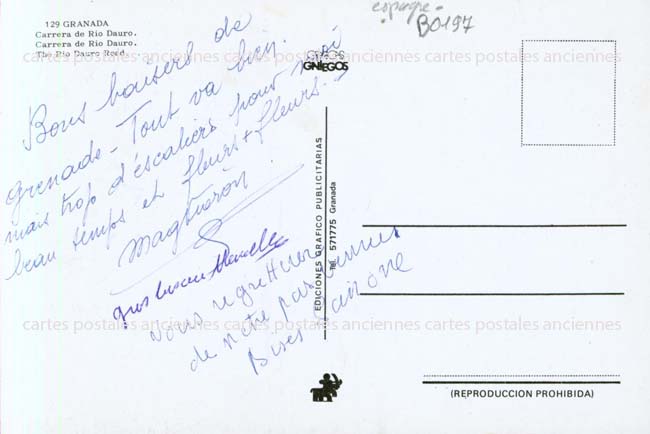 129 GRANADA
Carrera de Rio Dauro.
Carrera de Rio Dauro.
The Rio Dauro Road.
espagne
B0197
GRIEGOS
Bons baisers de
grenade - Tout va bien.
mais trop d'escaliers pour moi
beau temps et fleurs + fleurs.
gros bisous
nous
de notre pas
Bises
EDICIONES GRAFICO PUBLICITARIAS
Tel. 571775 Granada
cartes postales anciennes cartes postales anciennes cartes postales anciennes
cartes postales anciennes cartes postales anciennes cartes postales anciennes
(REPRODUCCION PROHIBIDA)